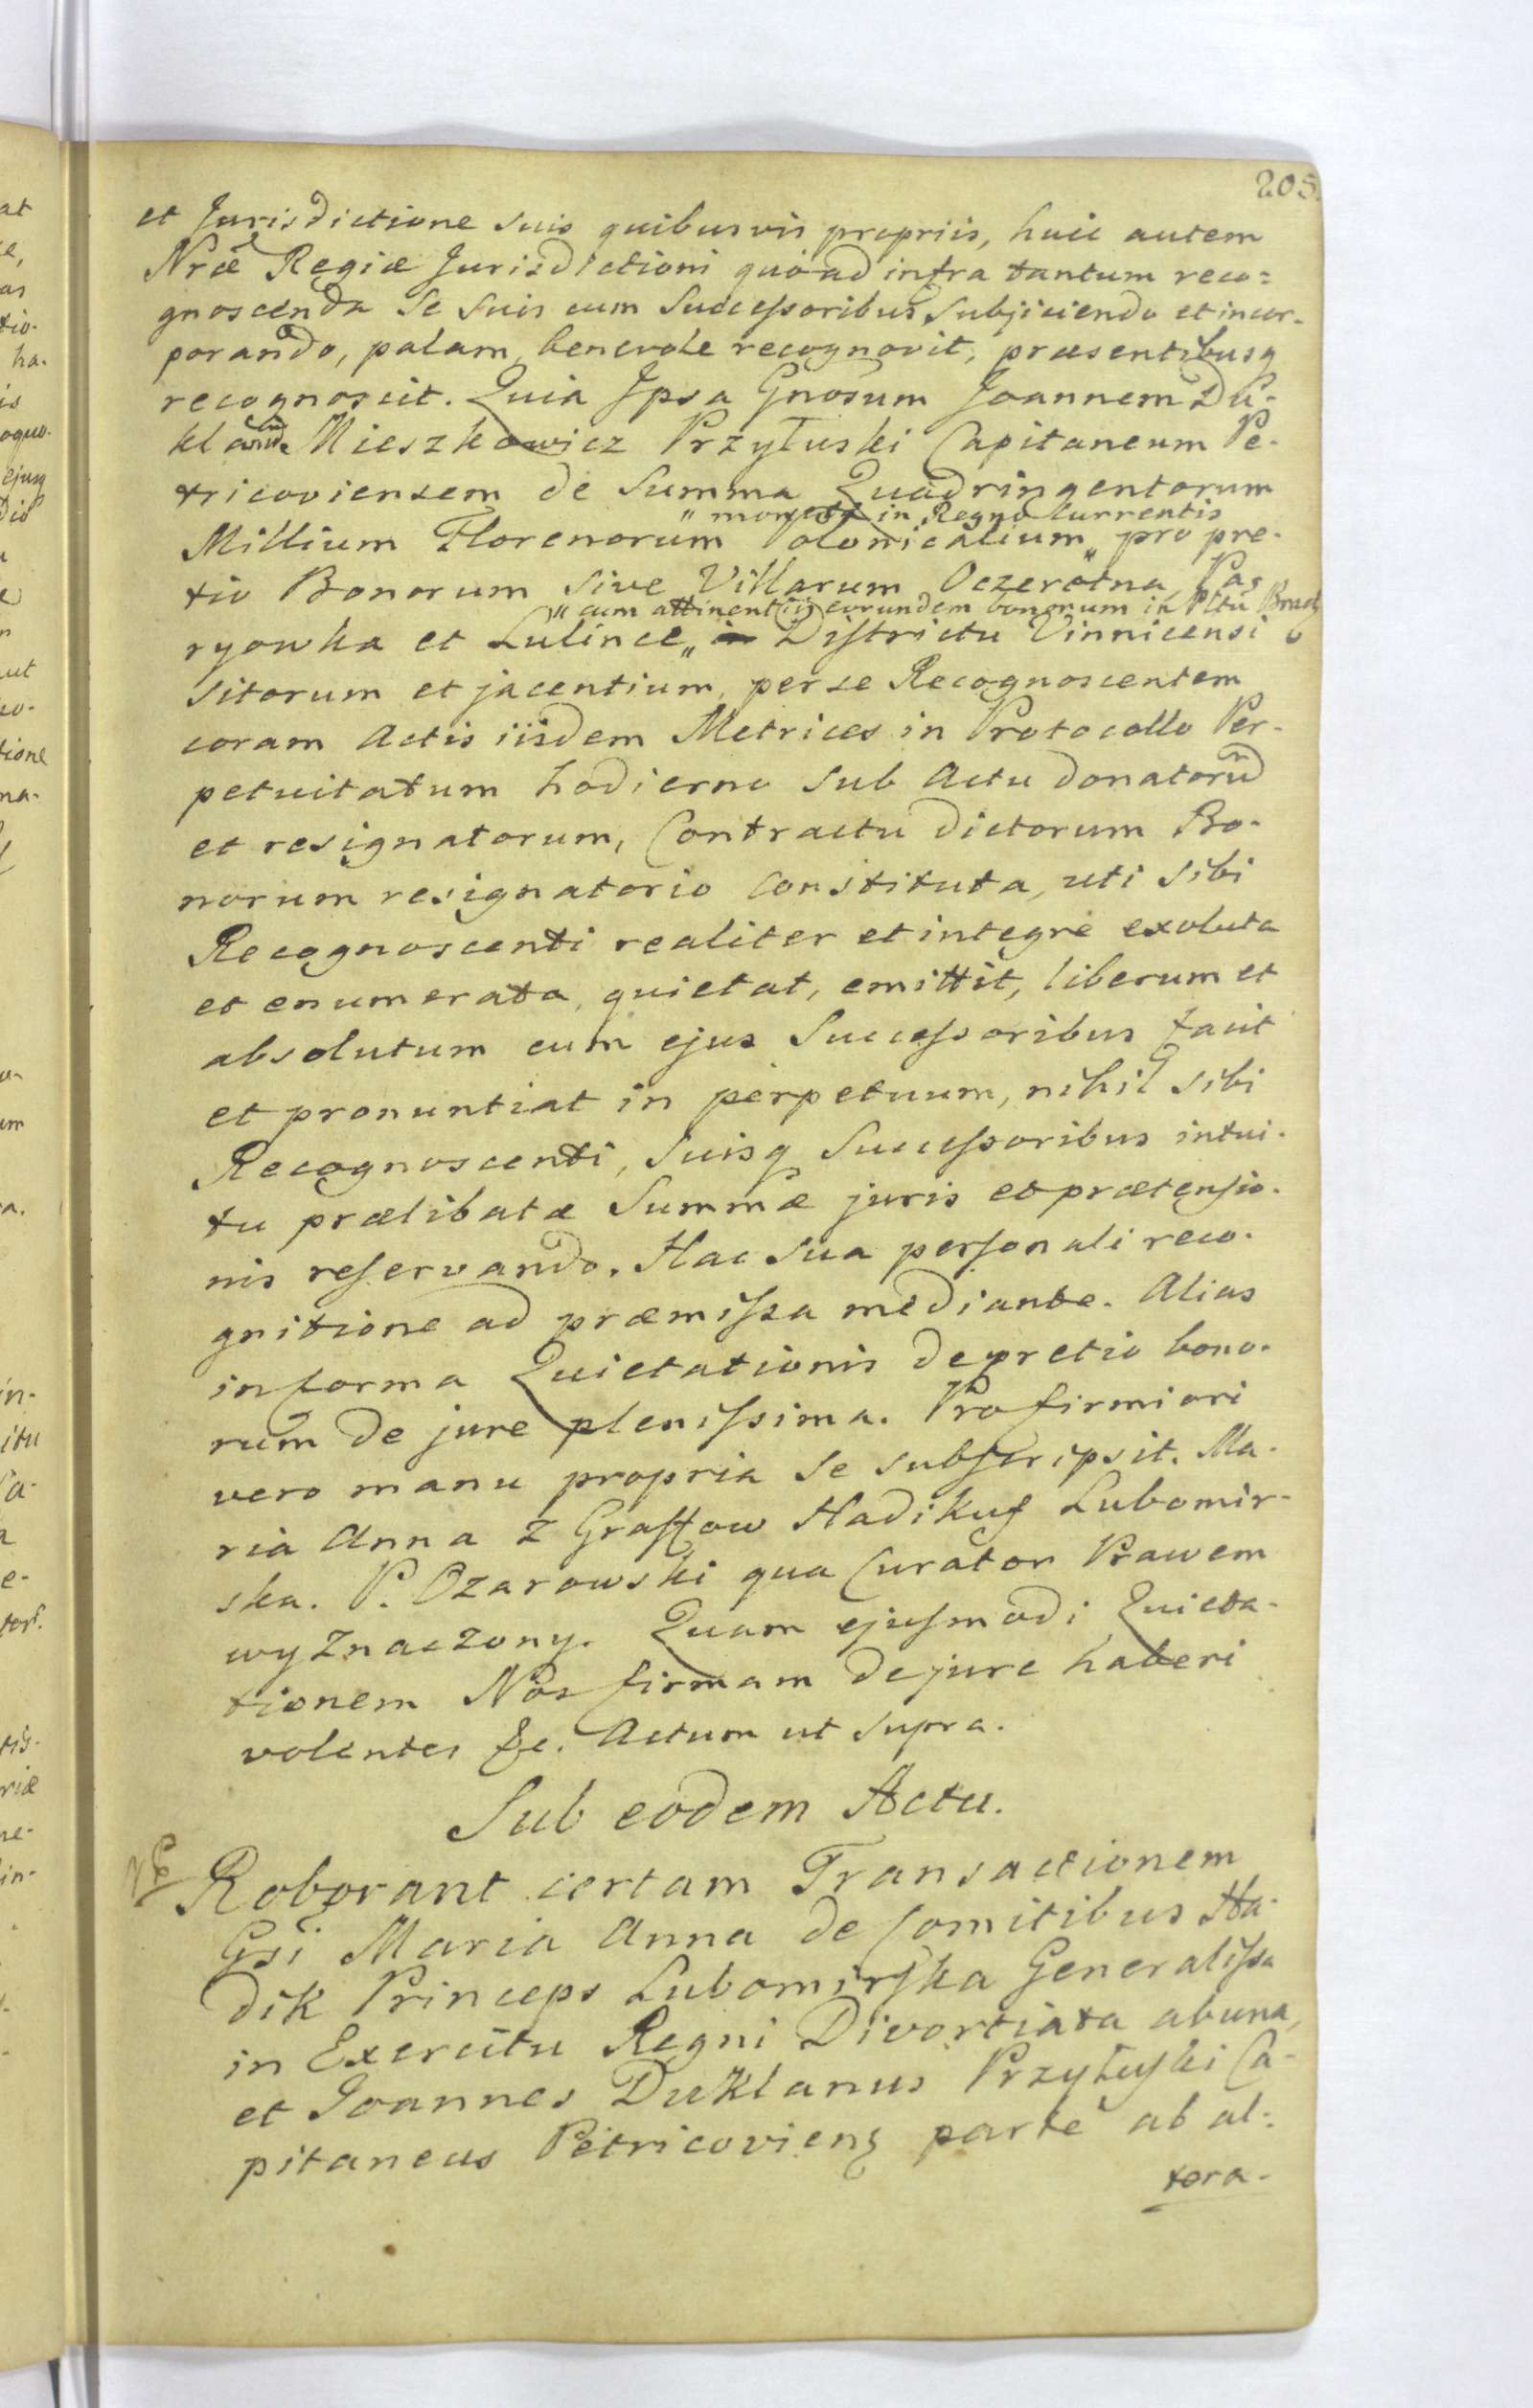 205.
et Jurisdictione suis quibusvis propriis, huic autem
Nræ Regiæ Jurisdictioni quò ad infra tantum reco=
gnoscenda se suis cum Successoribus subjiciendo et incor-
porando, palam, benevole recognovit, præsentibusq
recognoscit. Quia Ipsa Gnosum Joannem Du-
klanũ Mieszkowicz Przyłuski Capitaneum Pe-
tricoviensem de Summa Quadringentorum
" monetæ in Regno Currentis
Millium Florenorum Polonicalium " pro pre-
tio Bonorum sive Villarum Oczeretna, Pas
" cum attinentiis eorundem bonorum in Pltu Bracł
ryowka et Lulince " in Districtu Vinnicensi
sitorum et jacentium, per se Recognoscentem
coram Actis iisdem Metrices in Protocollo Per-
petuitatum hodierno sub Actu donatorũ
et resignatorum, Contractu dictorum Bo-
norum resignatorio constituta, uti sibi
Recognoscenti realiter et integrè exoluta
et enumerata, quietat, emittit, liberum et
absolutum cum ejus Successoribus facit
et pronuntiat in perpetuum, nihil sibi
Recognoscenti, suisq Successoribus intui-
tu prælibatæ Summæ juris et prætensio-
nis reservando. Hac sua personali reco-
gnitione ad præmissa mediante. Alias
in forma Quietationis de pretio bono-
rum de jure plenissima. Pro firmiori
vero manu propria se subscripsit. Ma-
ria Anna z Graffow Hadikuf Lubomir-
ska. P. Ozarowski qua Curator Prawem
wyznaczony. Quam ejusmodi Quieta-
tionem Nos firmam de jure haberi
volentes &c. Actum ut supra.
Sub eodem Actu.
Roborant certam Transactionem
Gsi Maria Anna de Comitibus Ha-
dik Princeps Lubomirska Generalissa
in Exercitu Regni Divortiata ab una,
et Joannes Duklanus Przyłuski Ca-
pitaneus Petricoviens parte ab al-
tera-